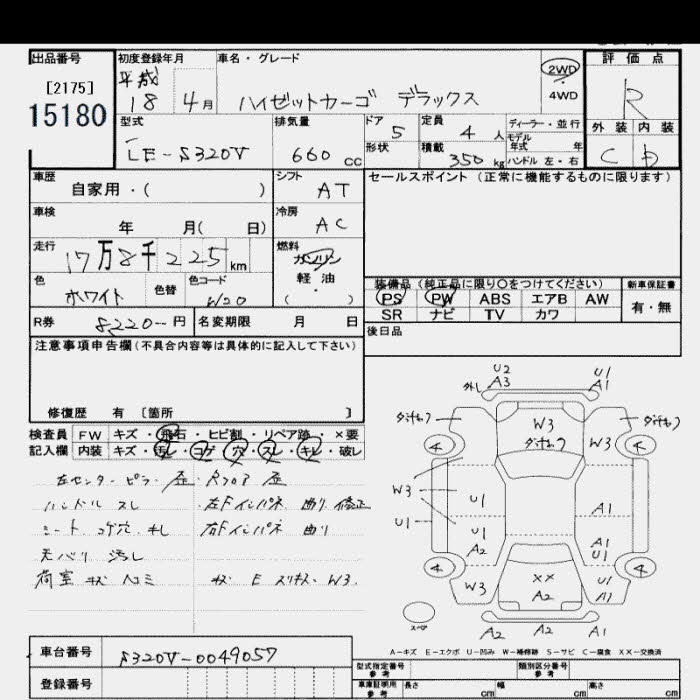 出品番号
[2175]
15180
初度登録年月
平成
18 4月
車名・グレード
ハイゼットカーゴ デラックス
2WD
・
4WD
評価点
R
外装 内装
C D
型式
LE-S320V
排気量
660 cc
ドア 5
形状
定員 4 人
積載 350 kg
ディーラー・並行
モデル
年式 年
ハンドル 左・右
車歴
自家用・( )
シフト
AT
セールスポイント (正常に機能するものに限ります)
車検
年 月( 日)
冷房
AC
走行
17万8千225km
燃料
ガソリン
軽油
・
( )
色
ホワイト
色替
色コード
W20
装備品 (純正品に限り○をつけてください)
新車保証書
PS PW ABS エアB AW
有・無
SR ナビ TV カワ
R券 8220-円
名変期限 月 日
後日品
注意事項申告欄(不具合内容等は具体的に記入して下さい)
修復歴 有 [箇所 ]
検査員 FW キズ・飛石・ヒビ割・リペア跡・×要
記入欄 内装 キズ・汚レ・コゲ・穴・スレ・キレ・破レ
左センターピラー 歪 Rフロア 歪
ハンドル スレ 左Fインパネ 曲り 修正
シート コゲ穴 キレ 右Fインパネ 曲り
天バリ 汚レ
荷室 キズ ヘコミ
W3
外し
U2
A3
U1
A1
W3
W3
4
4
W3
U1
U1
A1
A2
A1
U1
4
4
W3
××
A2
U1
A1
スペア
A2 A2 A1
A-キズ E-エクボ U-凹み W-補修跡 S-サビ C-腐食 ××-交換済
車台番号 S320V-0049057
登録番号
型式指定番号
参考
類別区分番号
参考
車庫証明用
参考
長さ cm 幅 cm 高さ cm